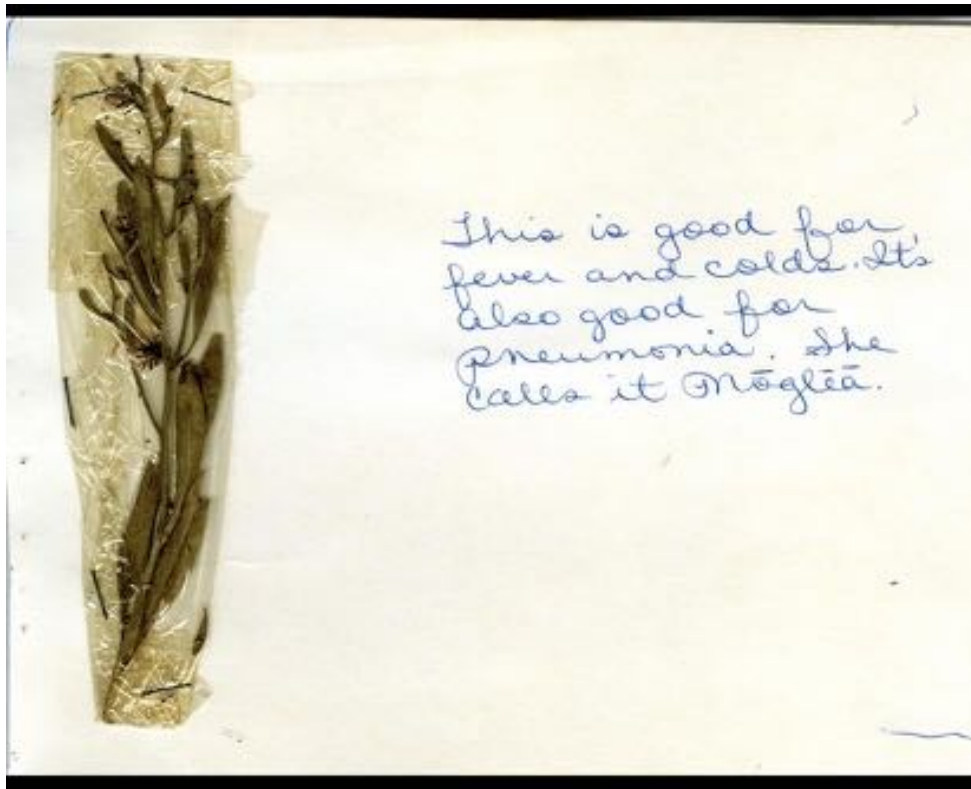 This is good for
fever and colds. It's
also good for
pneumonia. She
calls it Mōglēā.